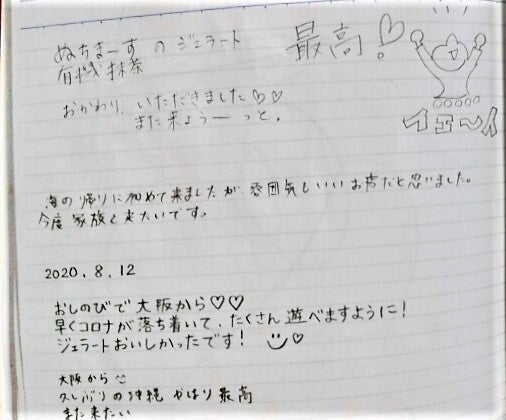 ぬちまーす の ジェラート 最高!♡
有機抹茶
おかわり、いただきました♡♡
また来よう――っと。
イェーイ
海の帰りに初めて来ましたが、雰囲気もいいお店だと思いました。
今度家族と来たいです。
2020.8.12
おしのびで大阪から♡♡
早くコロナが落ち着いて、たくさん遊べますように!
ジェラートおいしかったです!
大阪から
久しぶりの沖縄 やはり最高
また来たい